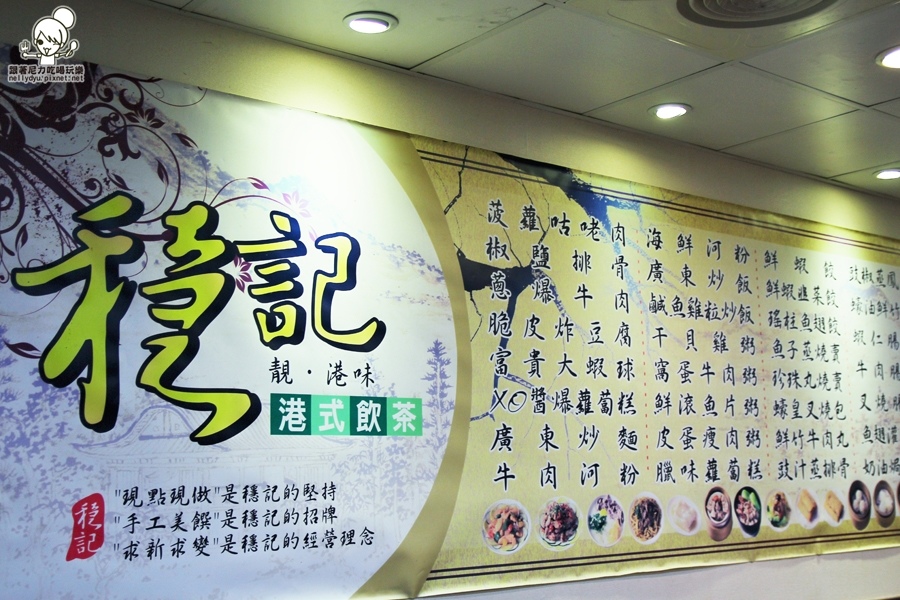 跟著尼力吃喝玩樂
nellydyu.pixnet.net
穩記
靚·港味
港式飲茶
穩記
"現點現做"是穩記的堅持
"手工美饌"是穩記的招牌
"求新求變"是穩記的經營理念
菠蘿咕咾肉
椒鹽排骨
蔥爆牛肉
脆皮炸豆腐
富貴大蝦球
XO醬爆蘿蔔糕
廣東炒麵
牛肉河粉
海鮮河粉
廣東炒飯
鹹魚雞粒炒飯
干貝雞粥
窩蛋牛肉粥
鮮滾魚片粥
皮蛋瘦肉粥
臘味蘿蔔糕
鮮蝦餃
鮮蝦韭菜餃
瑤柱魚翅餃
魚子蒸燒賣
珍珠丸燒賣
蠔皇叉燒包
鮮竹牛肉丸
豉汁蒸排骨
豉椒蒸鳳
蠔油鮮竹
蝦仁腸
牛肉腸
叉燒腸
魚翅灌
奶油焗